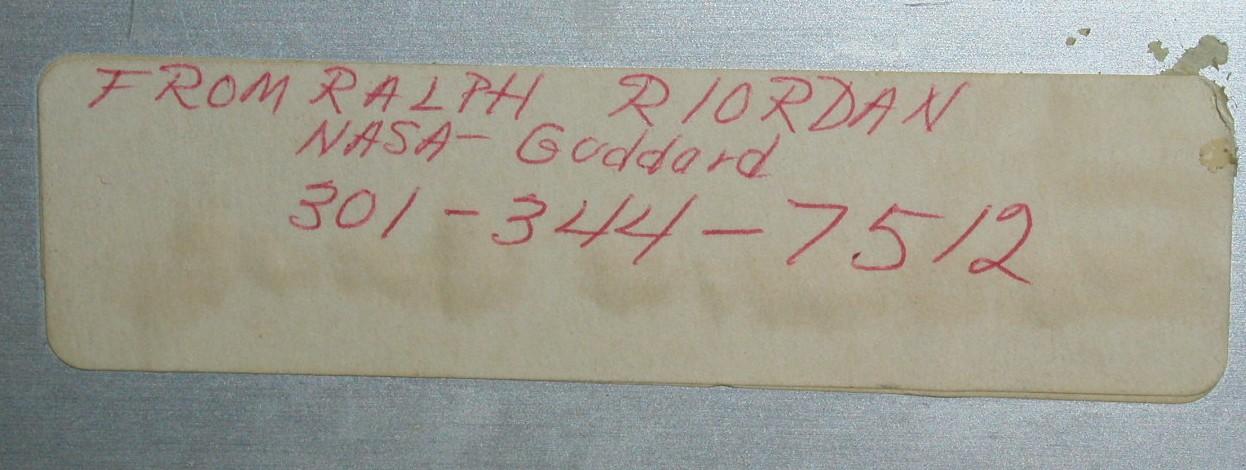 FROM RALPH RIORDAN
NASA- Goddard
301-344-7512